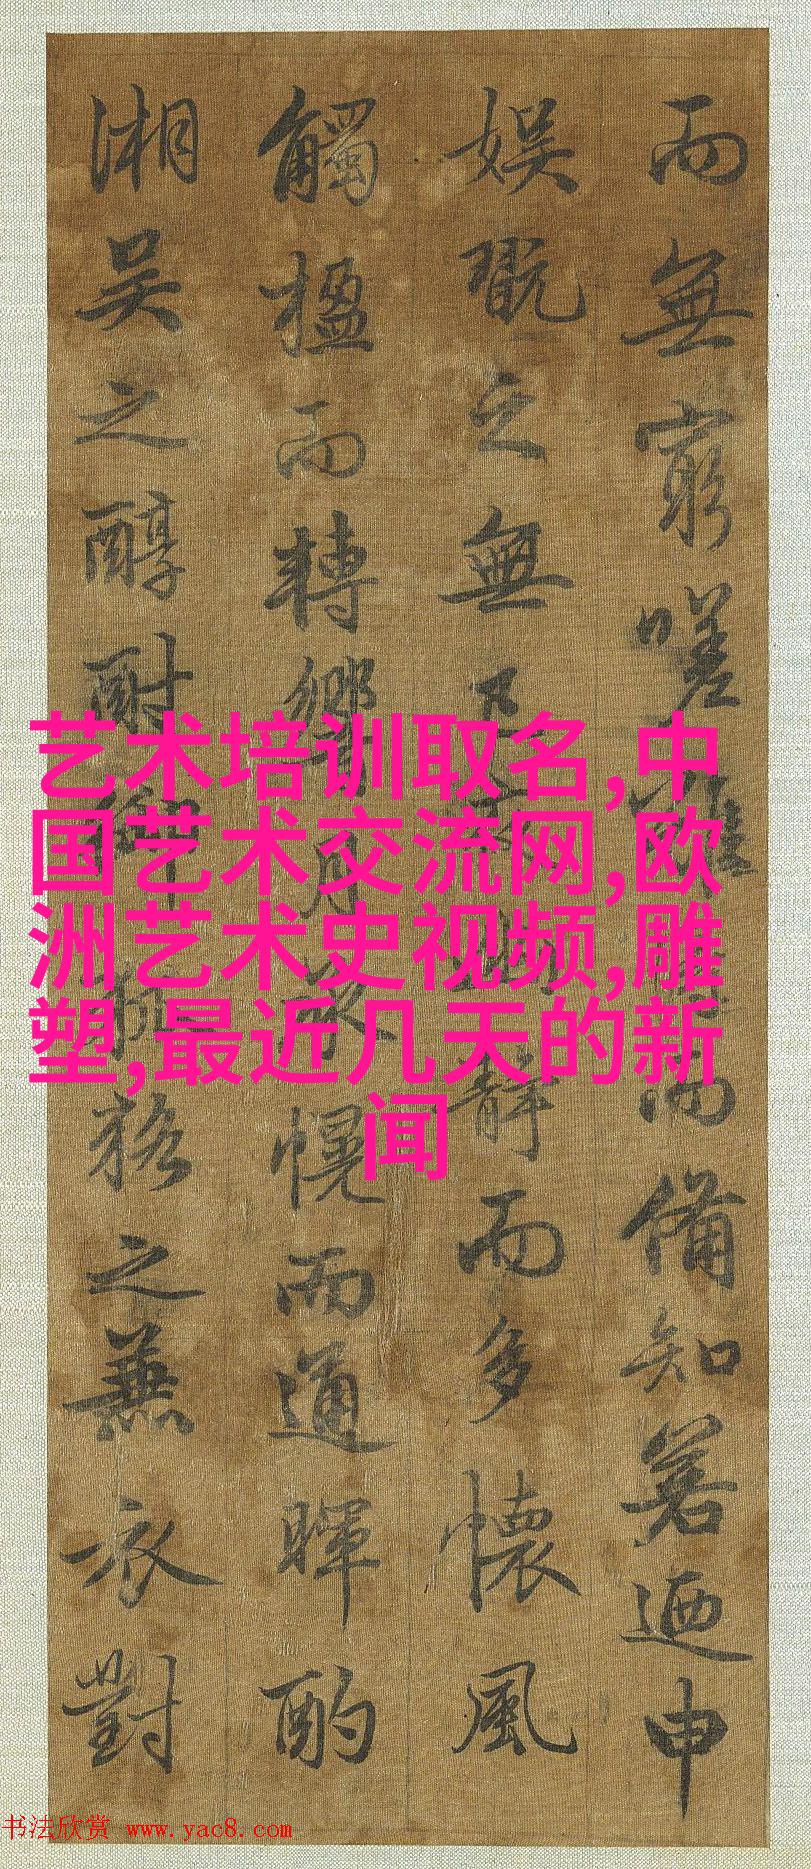 而無窮嗟難而備知若迺申
娛翫之無已靜而多懷風
觸楹而轉響月承幌而通暉酌
湘吳之醇酎御狢之兼衣對
艺术培训取名,中
国艺术交流网,欧
洲艺术史视频,雕
塑,最近几天的新
闻
书法欣赏 www.yac8.com